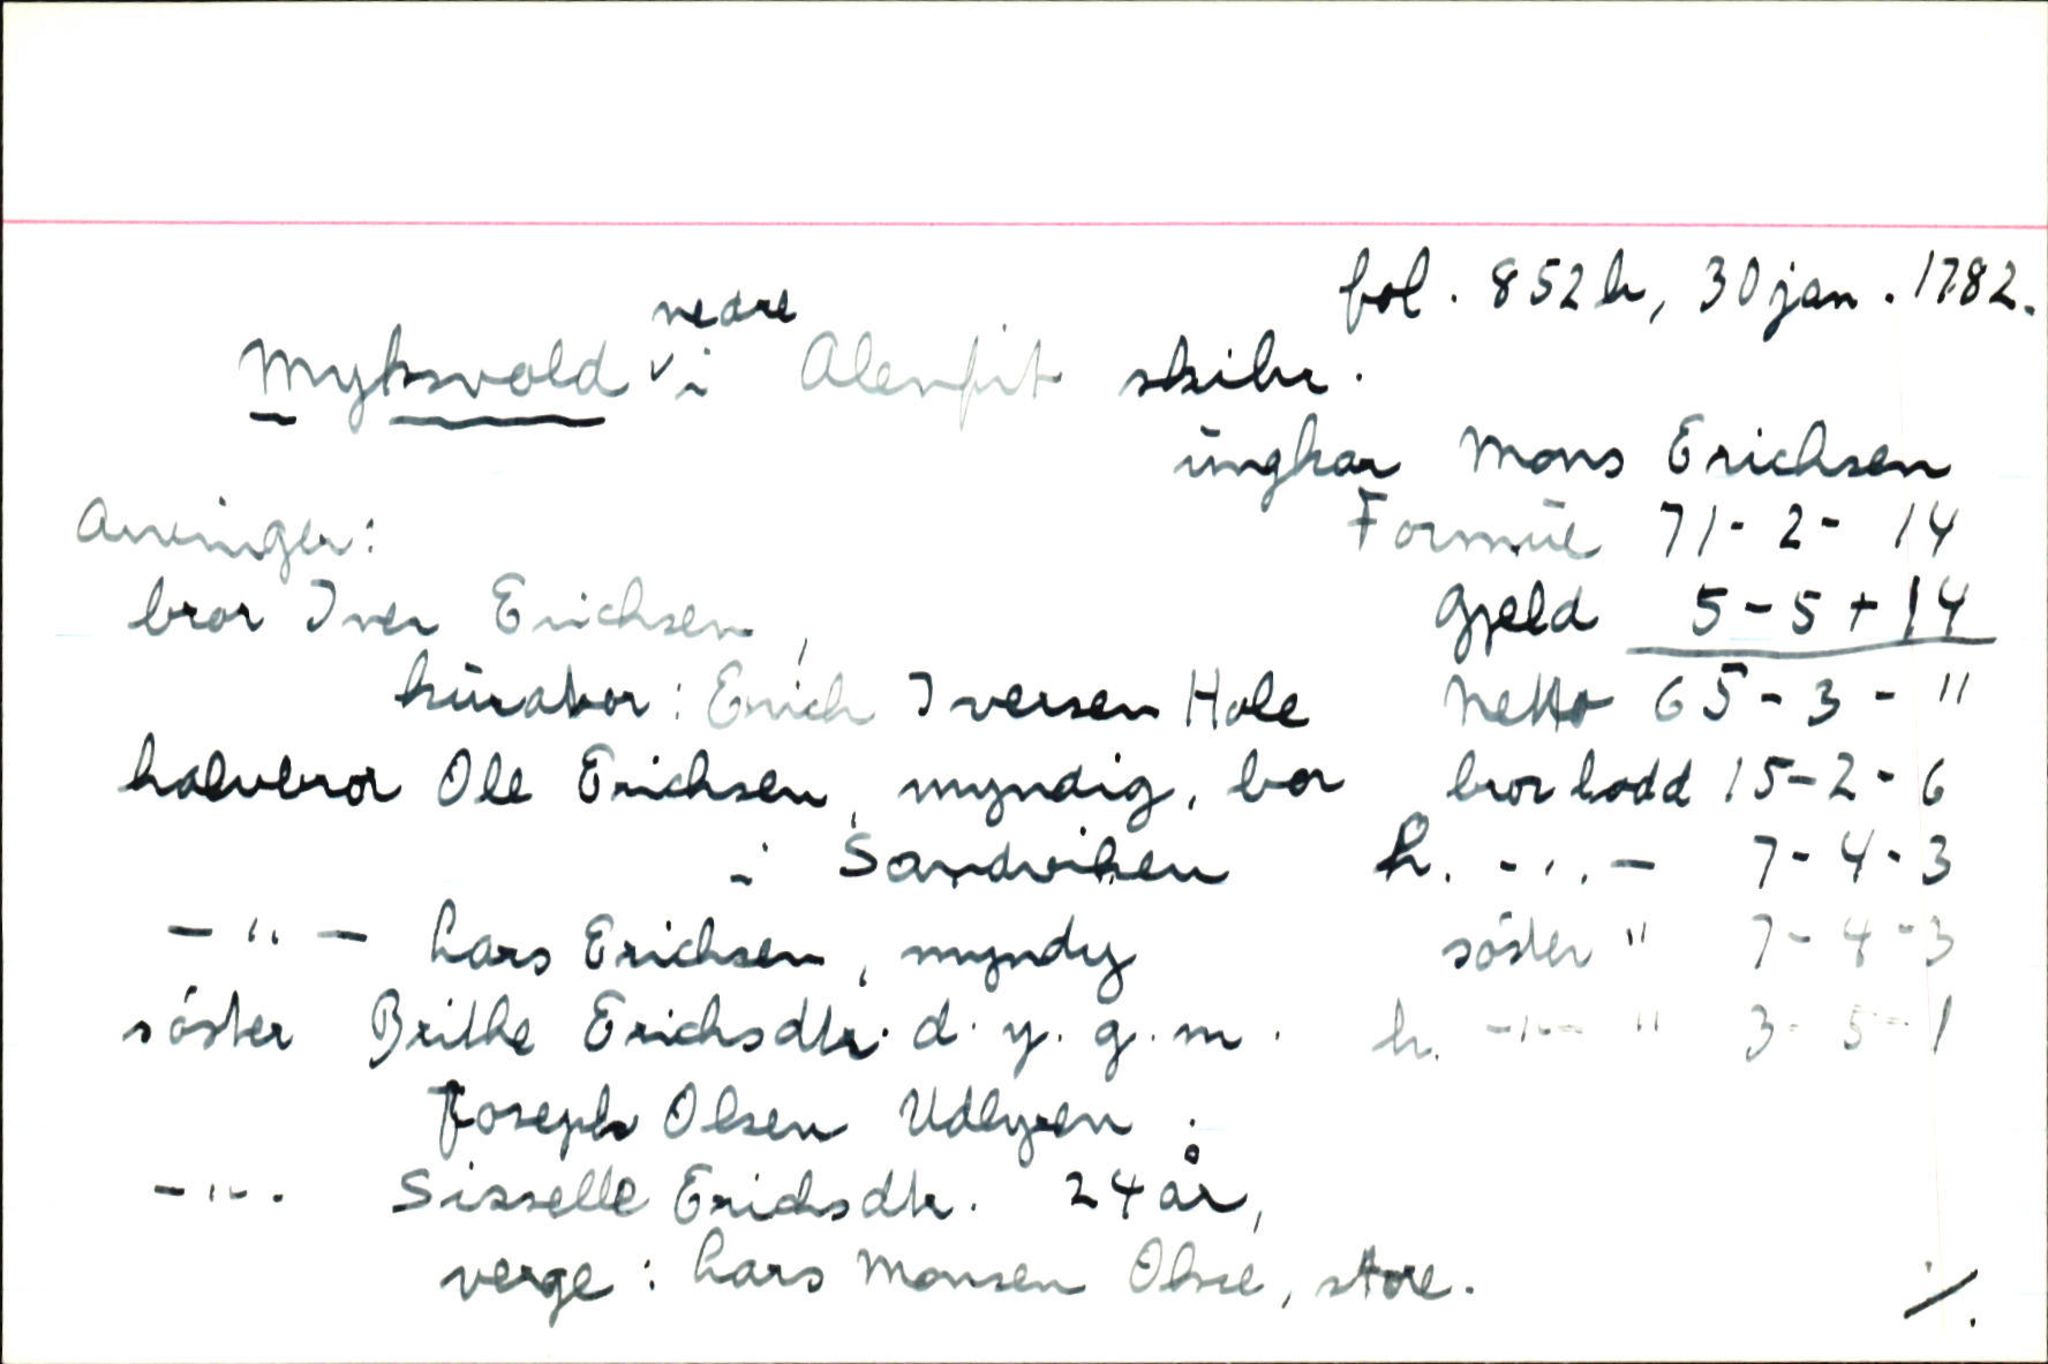 fol. 852 b, 30 jan. 1782.
nedre
Myksvold i Alenfit skibr.
ungkar Mons Erichsen
Arvinger: Formue 71 - 2 - 14
bror Iver Erichsen, Gjeld 5 - 5 + 14
kurator: Erich Iversen Hole Netto 65 - 3 - "
halvbror Ole Erichsen, myndig, bor brorlodd 15 - 2 - 6
i Sandviken h. - " - 7 - 4 - 3
- " - Lars Erichsen, myndig söster " 7 - 4 - 3
söster Brithe Erichsdtr. d. y. g. m. h. - " - " 3 - 5 - 1
Joseph Olsen Udlyren.
- " - Sisselle Erichsdtr. 24 år,
verge: Lars Monsen Olsæ, store.
./.